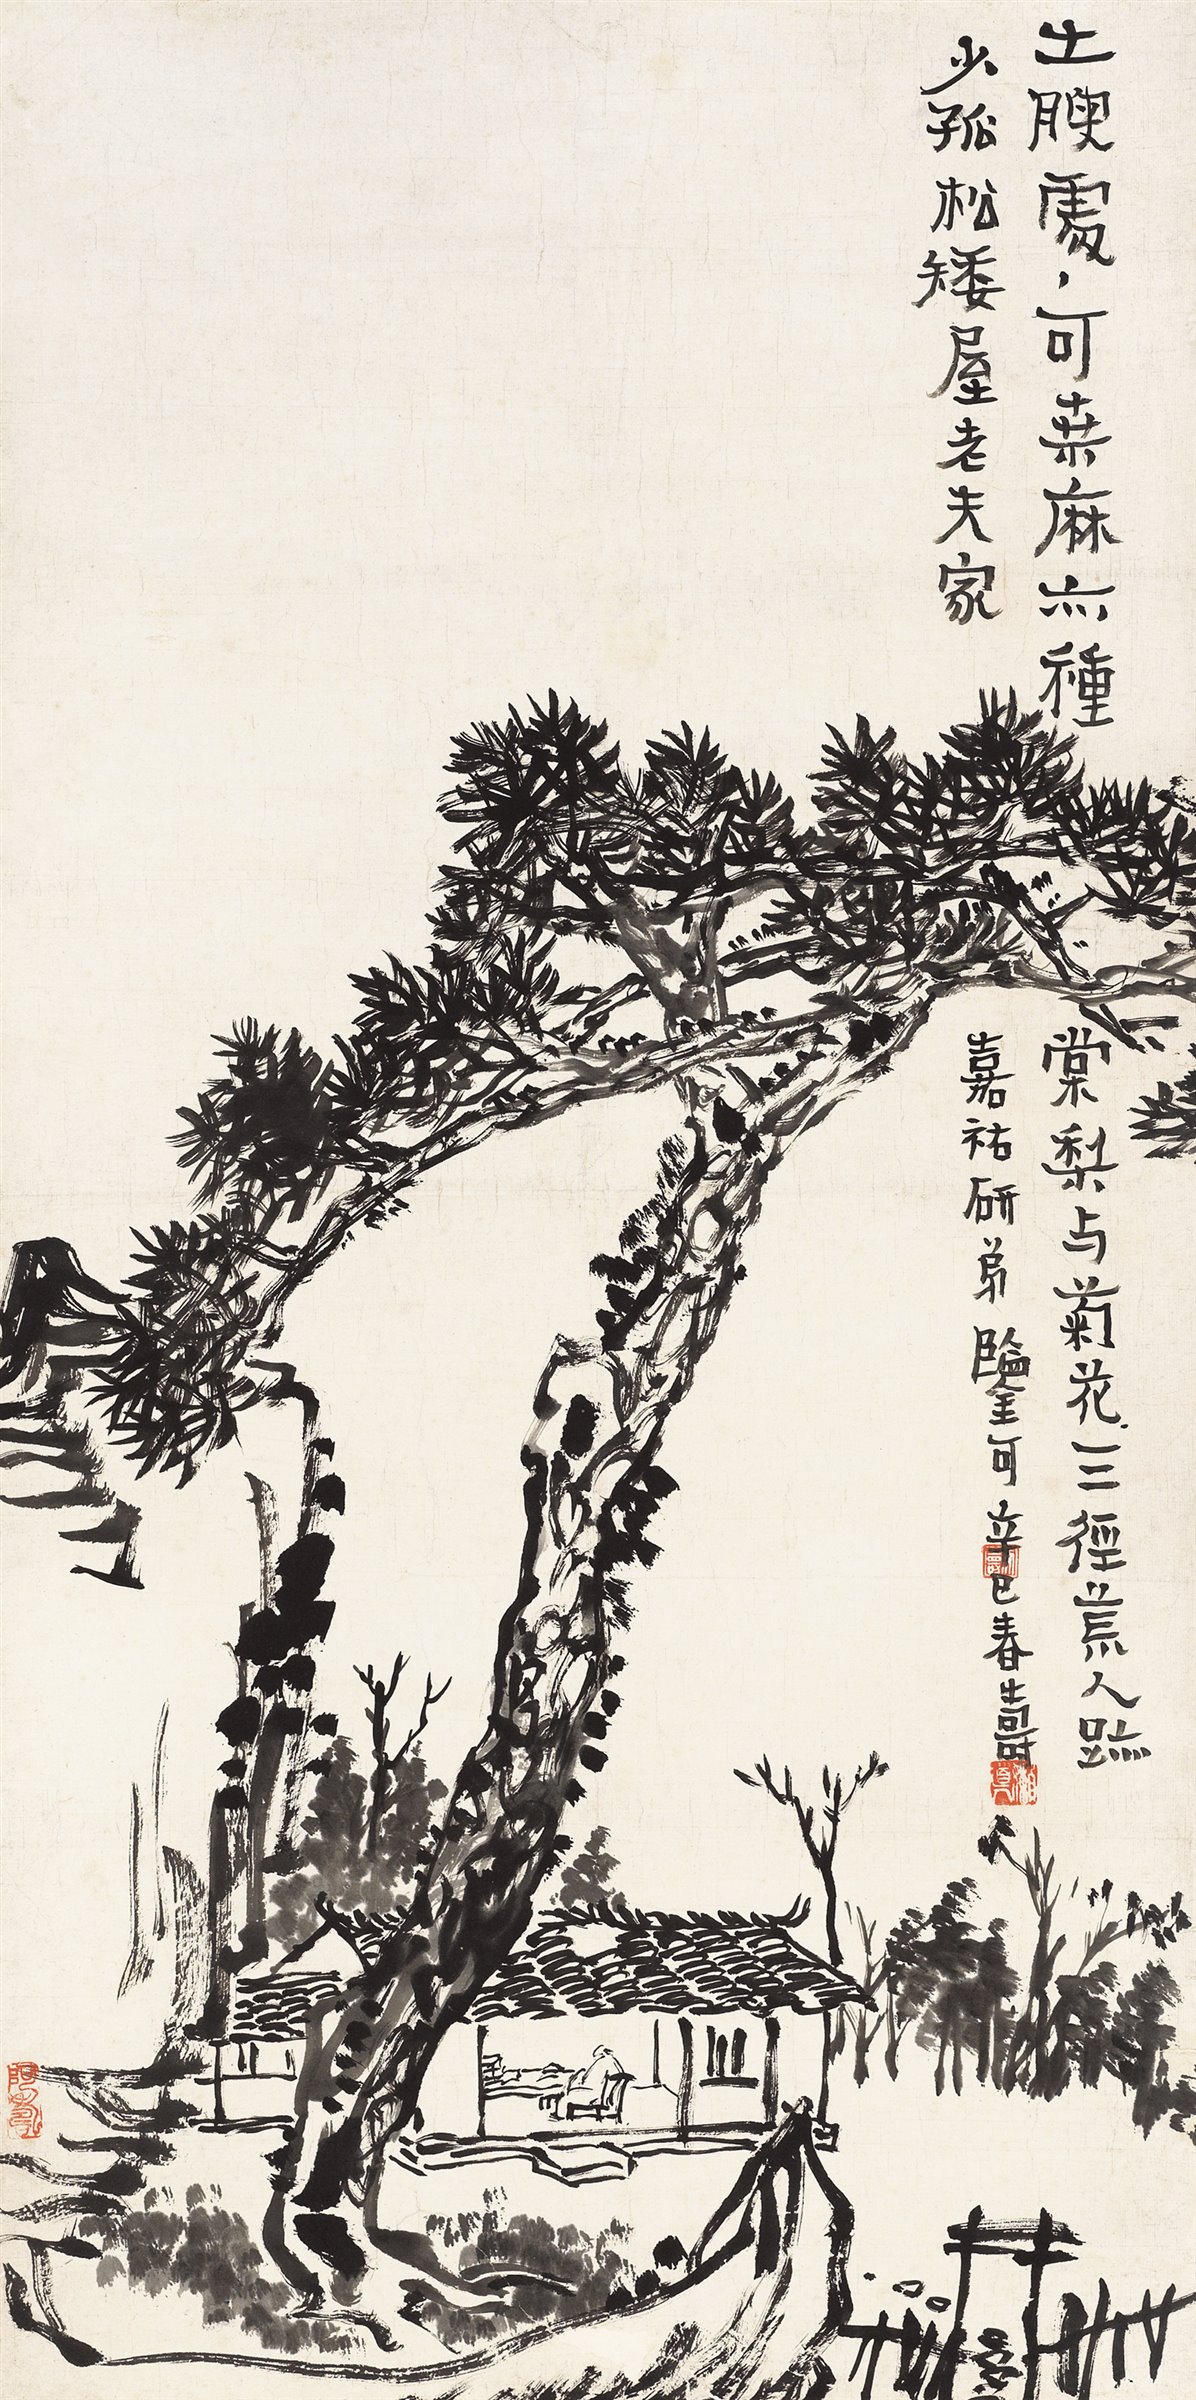 土腴處、可桑麻亦種棠梨与菊花三徑荒人跡
少孤松矮屋老夫家
嘉祐研弟鑒可辛巳春壽
阿壽